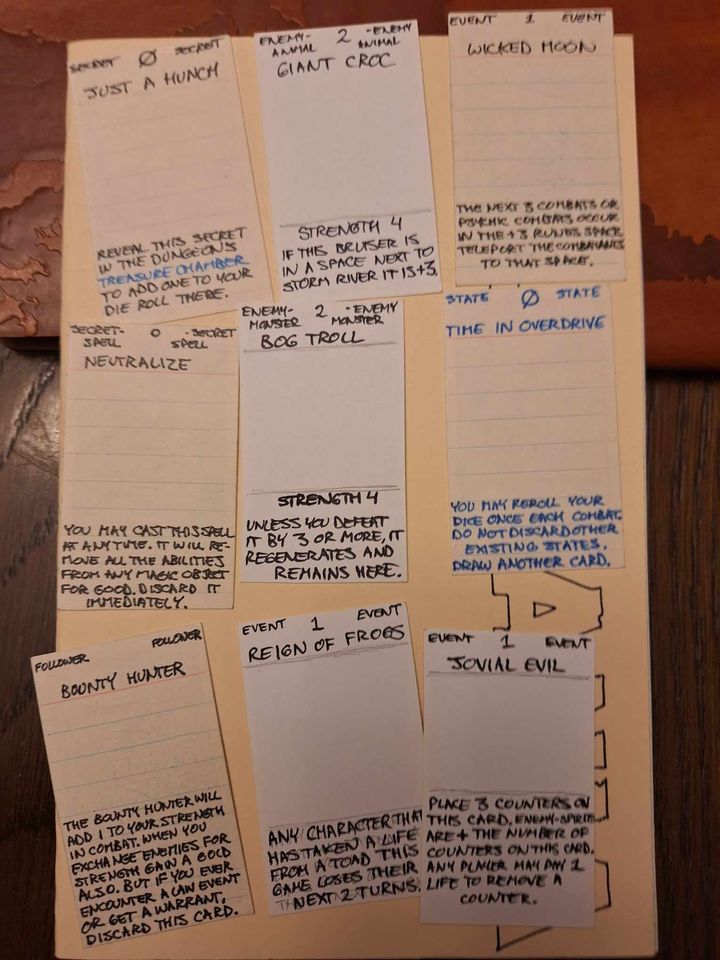 SECRET Ø SECRET
JUST A HUNCH
REVEAL THIS SECRET
IN THE DUNGEON'S
TREASURE CHAMBER
TO ADD ONE TO YOUR
DIE ROLL THERE.
ENEMY- 2 -ENEMY
ANIMAL ANIMAL
GIANT CROC
STRENGTH 4
IF THIS BRUISER IS
IN A SPACE NEXT TO
STORM RIVER IT IS +3.
EVENT 1 EVENT
WICKED MOON
THE NEXT 3 COMBATS OR
PSYCHIC COMBATS OCCUR
IN THE +3 RUNES SPACE
TELEPORT THE COMBATANTS
TO THAT SPACE.
SECRET- 0 -SECRET
SPELL SPELL
NEUTRALIZE
YOU MAY CAST THIS SPELL
AT ANY TIME. IT WILL RE-
MOVE ALL THE ABILITIES
FROM ANY MAGIC OBJECT
FOR GOOD. DISCARD IT
IMMEDIATELY.
ENEMY- 2 -ENEMY
MONSTER MONSTER
BOG TROLL
STRENGTH 4
UNLESS YOU DEFEAT
IT BY 3 OR MORE, IT
REGENERATES AND
REMAINS HERE.
STATE Ø STATE
TIME IN OVERDRIVE
YOU MAY REROLL YOUR
DICE ONCE EACH COMBAT.
DO NOT DISCARD OTHER
EXISTING STATES.
DRAW ANOTHER CARD.
FOLLOWER FOLLOWER
BOUNTY HUNTER
THE BOUNTY HUNTER WILL
ADD 1 TO YOUR STRENGTH
IN COMBAT. WHEN YOU
EXCHANGE ENEMIES FOR
STRENGTH GAIN A GOLD
ALSO. BUT IF YOU EVER
ENCOUNTER A LAW EVENT
OR GET A WARRANT,
DISCARD THIS CARD.
EVENT 1 EVENT
REIGN OF FROGS
ANY CHARACTER THAT
HAS TAKEN A LIFE
FROM A TOAD THIS
GAME LOSES THEIR
NEXT 2 TURNS
EVENT 1 EVENT
JOVIAL EVIL
PLACE 3 COUNTERS ON
THIS CARD. ENEMY-SPIRITS
ARE + THE NUMBER OF
COUNTERS ON THIS CARD.
ANY PLAYER MAY PAY 1
LIFE TO REMOVE A
COUNTER.